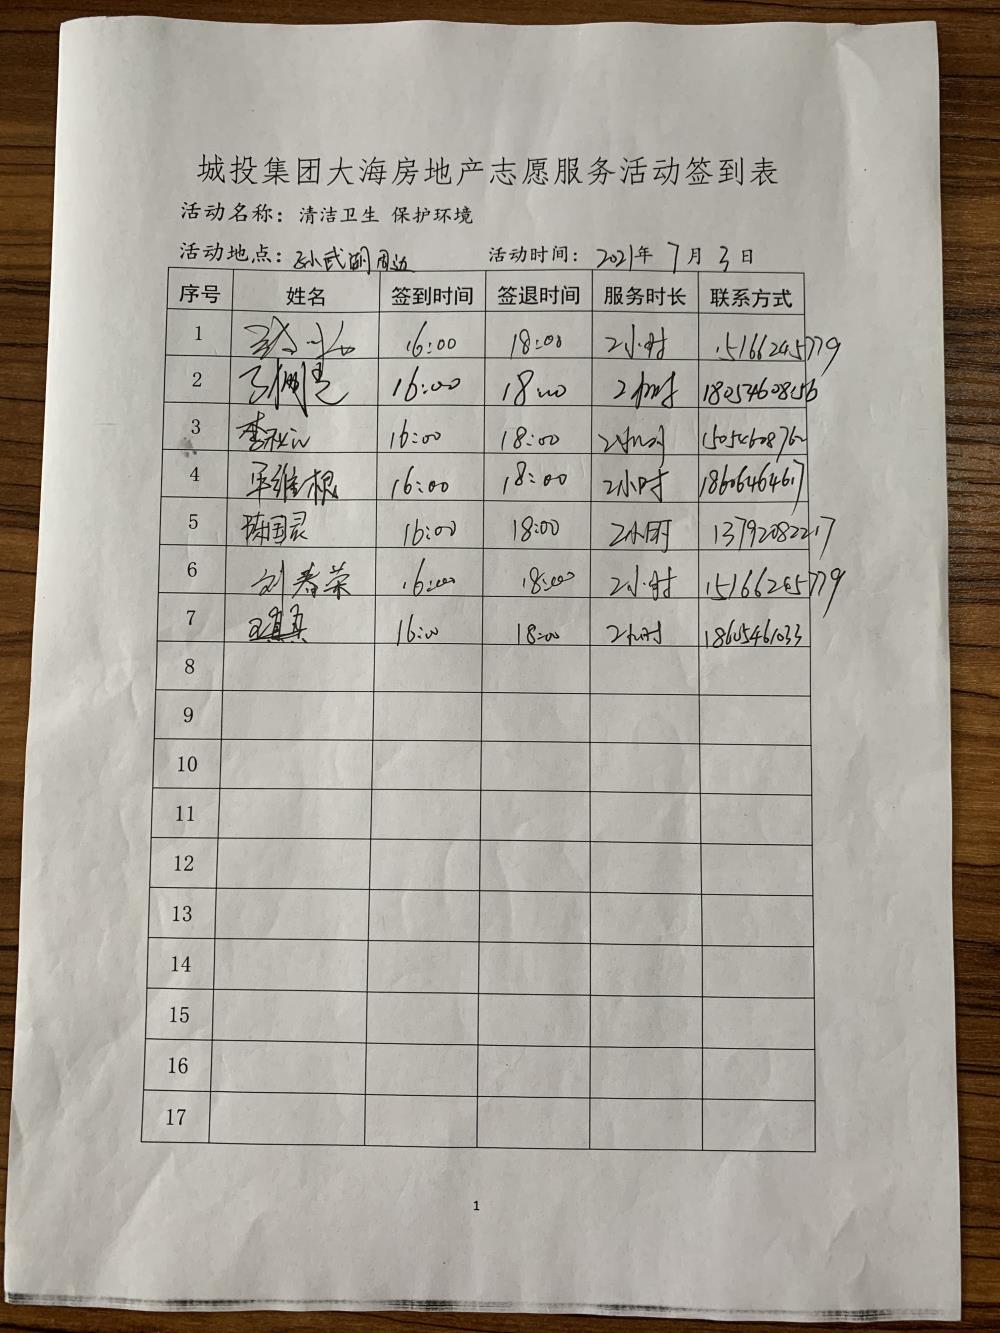 城投集团大海房地产志愿服务活动签到表
活动名称：清洁卫生 保护环境
活动地点：孙武湖周边 活动时间：2021年7月3日
序号 姓名 签到时间 签退时间 服务时长 联系方式
1 16:00 18:00 2小时 15166245779
2 16:00 18:00 2小时 18054608156
3 16:00 18:00 2小时
4 王维根 16:00 18:00 2小时 18606464617
5 陈国灵 16:00 18:00 2小时 13792082217
6 刘春荣 16:00 18:00 2小时 15166245779
7 王真真 16:00 18:00 2小时 18605461033
8
9
10
11
12
13
14
15
16
17
1